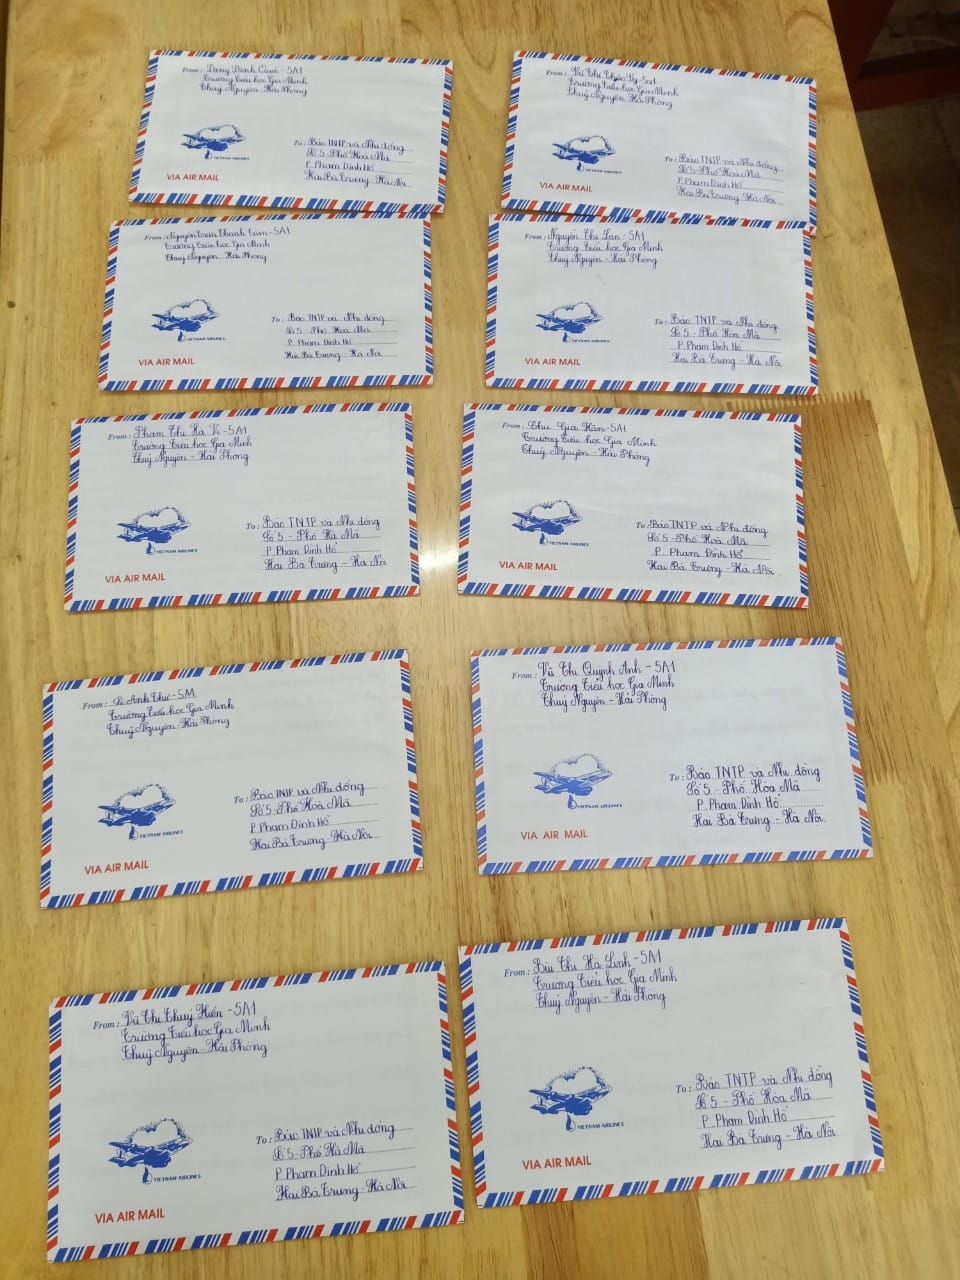 From: Dang Đình Quốc - 5A1
Trường Tiểu học Gia Minh
Thuỷ Nguyên - Hải Phòng
VIETNAM AIRLINES
VIA AIR MAIL
To: Báo TNTP và Nhi đồng
Số 5 - Phố Hoà Mã
P. Phạm Đình Hổ
Hai Bà Trưng - Hà Nội
From: Vũ Thị Thảo Vy - 5A1
Trường Tiểu học Gia Minh
Thuỷ Nguyên - Hải Phòng
VIETNAM AIRLINES
VIA AIR MAIL
To: Báo TNTP và Nhi đồng
Số 5 - Phố Hoà Mã
P. Phạm Đình Hổ
Hai Bà Trưng - Hà Nội
From: Nguyễn Trần Thanh Tâm - 5A1
Trường Tiểu học Gia Minh
Thuỷ Nguyên - Hải Phòng
VIETNAM AIRLINES
VIA AIR MAIL
To: Báo TNTP và Nhi đồng
Số 5 - Phố Hoà Mã
P. Phạm Đình Hổ
Hai Bà Trưng - Hà Nội
From: Nguyễn Thị Lan - 5A1
Trường Tiểu học Gia Minh
Thuỷ Nguyên - Hải Phòng
VIETNAM AIRLINES
VIA AIR MAIL
To: Báo TNTP và Nhi đồng
Số 5 - Phố Hòa Mã
P. Phạm Đình Hổ
Hai Bà Trưng - Hà Nội
From: Phạm Thị Hà Vi - 5A1
Trường Tiểu học Gia Minh
Thuỷ Nguyên - Hải Phòng
VIETNAM AIRLINES
VIA AIR MAIL
To: Báo TNTP và Nhi đồng
Số 5 - Phố Hà Mã
P. Phạm Đình Hổ
Hai Bà Trưng - Hà Nội
From: Chu Gia Hân - 5A1
Trường Tiểu học Gia Minh
Thuỷ Nguyên - Hải Phòng
VIETNAM AIRLINES
VIA AIR MAIL
To: Báo TNTP và Nhi đồng
Số 5 - Phố Hà Mã
P. Phạm Đình Hổ
Hai Bà Trưng - Hà Nội
From: Lê Anh Thư - 5A1
Trường Tiểu học Gia Minh
Thuỷ Nguyên - Hải Phòng
VIETNAM AIRLINES
VIA AIR MAIL
To: Báo TNTP và Nhi đồng
Số 5 - Phố Hoà Mã
P. Phạm Đình Hổ
Hai Bà Trưng - Hà Nội
From: Vũ Thị Quỳnh Anh - 5A1
Trường Tiểu học Gia Minh
Thuỷ Nguyên - Hải Phòng
VIETNAM AIRLINES
VIA AIR MAIL
To: Báo TNTP và Nhi đồng
Số 5 - Phố Hòa Mã
P. Phạm Đình Hổ
Hai Bà Trưng - Hà Nội
From: Vũ Thị Thuý Hiền - 5A1
Trường Tiểu học Gia Minh
Thuỷ Nguyên - Hải Phòng
VIETNAM AIRLINES
VIA AIR MAIL
To: Báo TNTP và Nhi đồng
Số 5 - Phố Hà Mã
P. Phạm Đình Hổ
Hai Bà Trưng - Hà Nội
From: Bùi Thị Hà Linh - 5A1
Trường Tiểu học Gia Minh
Thuỷ Nguyên - Hải Phòng
VIETNAM AIRLINES
VIA AIR MAIL
To: Báo TNTP và Nhi đồng
Số 5 - Phố Hòa Mã
P. Phạm Đình Hổ
Hai Bà Trưng - Hà Nội